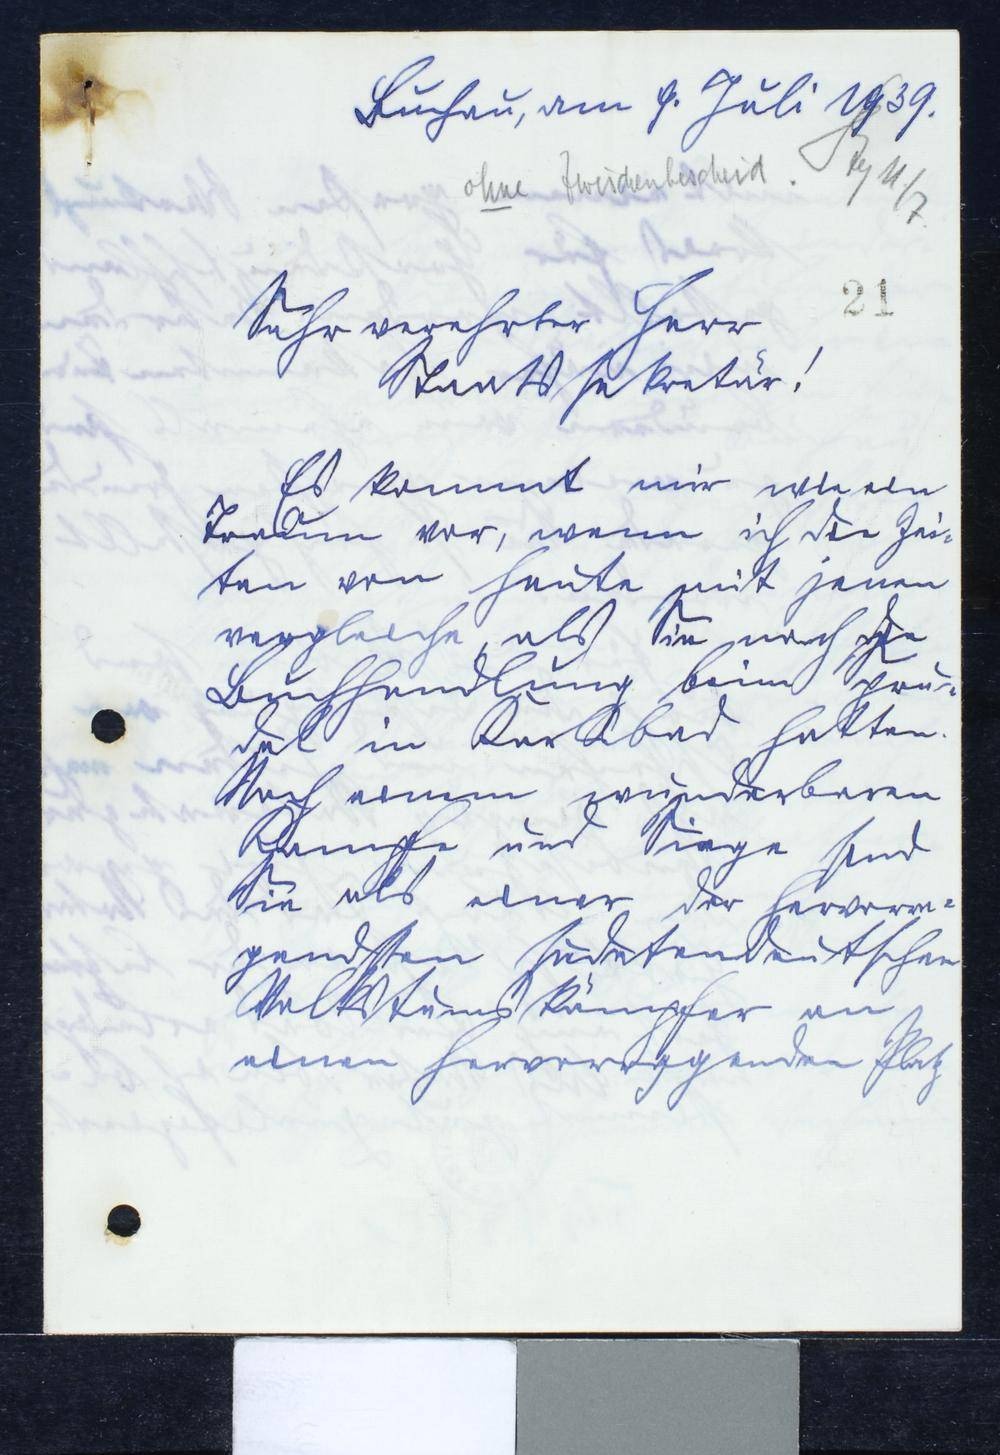 Buchau, am 9. Juli 1939.
ohne Zwischenbescheid.
11/7
21
Sehr verehrter Herr
Staatssekretär!
Es kommt mir wie ein
Traum vor, wenn ich die Zei-
ten von heute mit jenen
vergleiche, als Sie noch die
Buchhandlung beim Spru-
del in Karlsbad hatten.
Nach einem wunderbaren
Kampfe und Siege sind
Sie als einer der hervorra-
gendsten sudetendeutschen
Volkstumskämpfer an
einen hervorragenden Platz